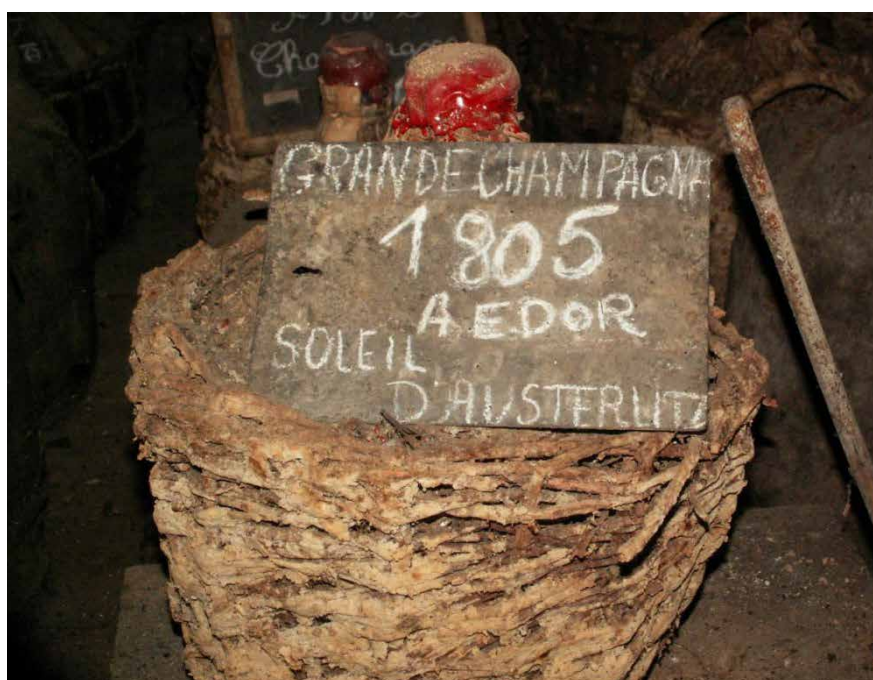 GRANDE CHAMPAGNE
1805
AEDOR
SOLEIL
D'AUSTERLITZ